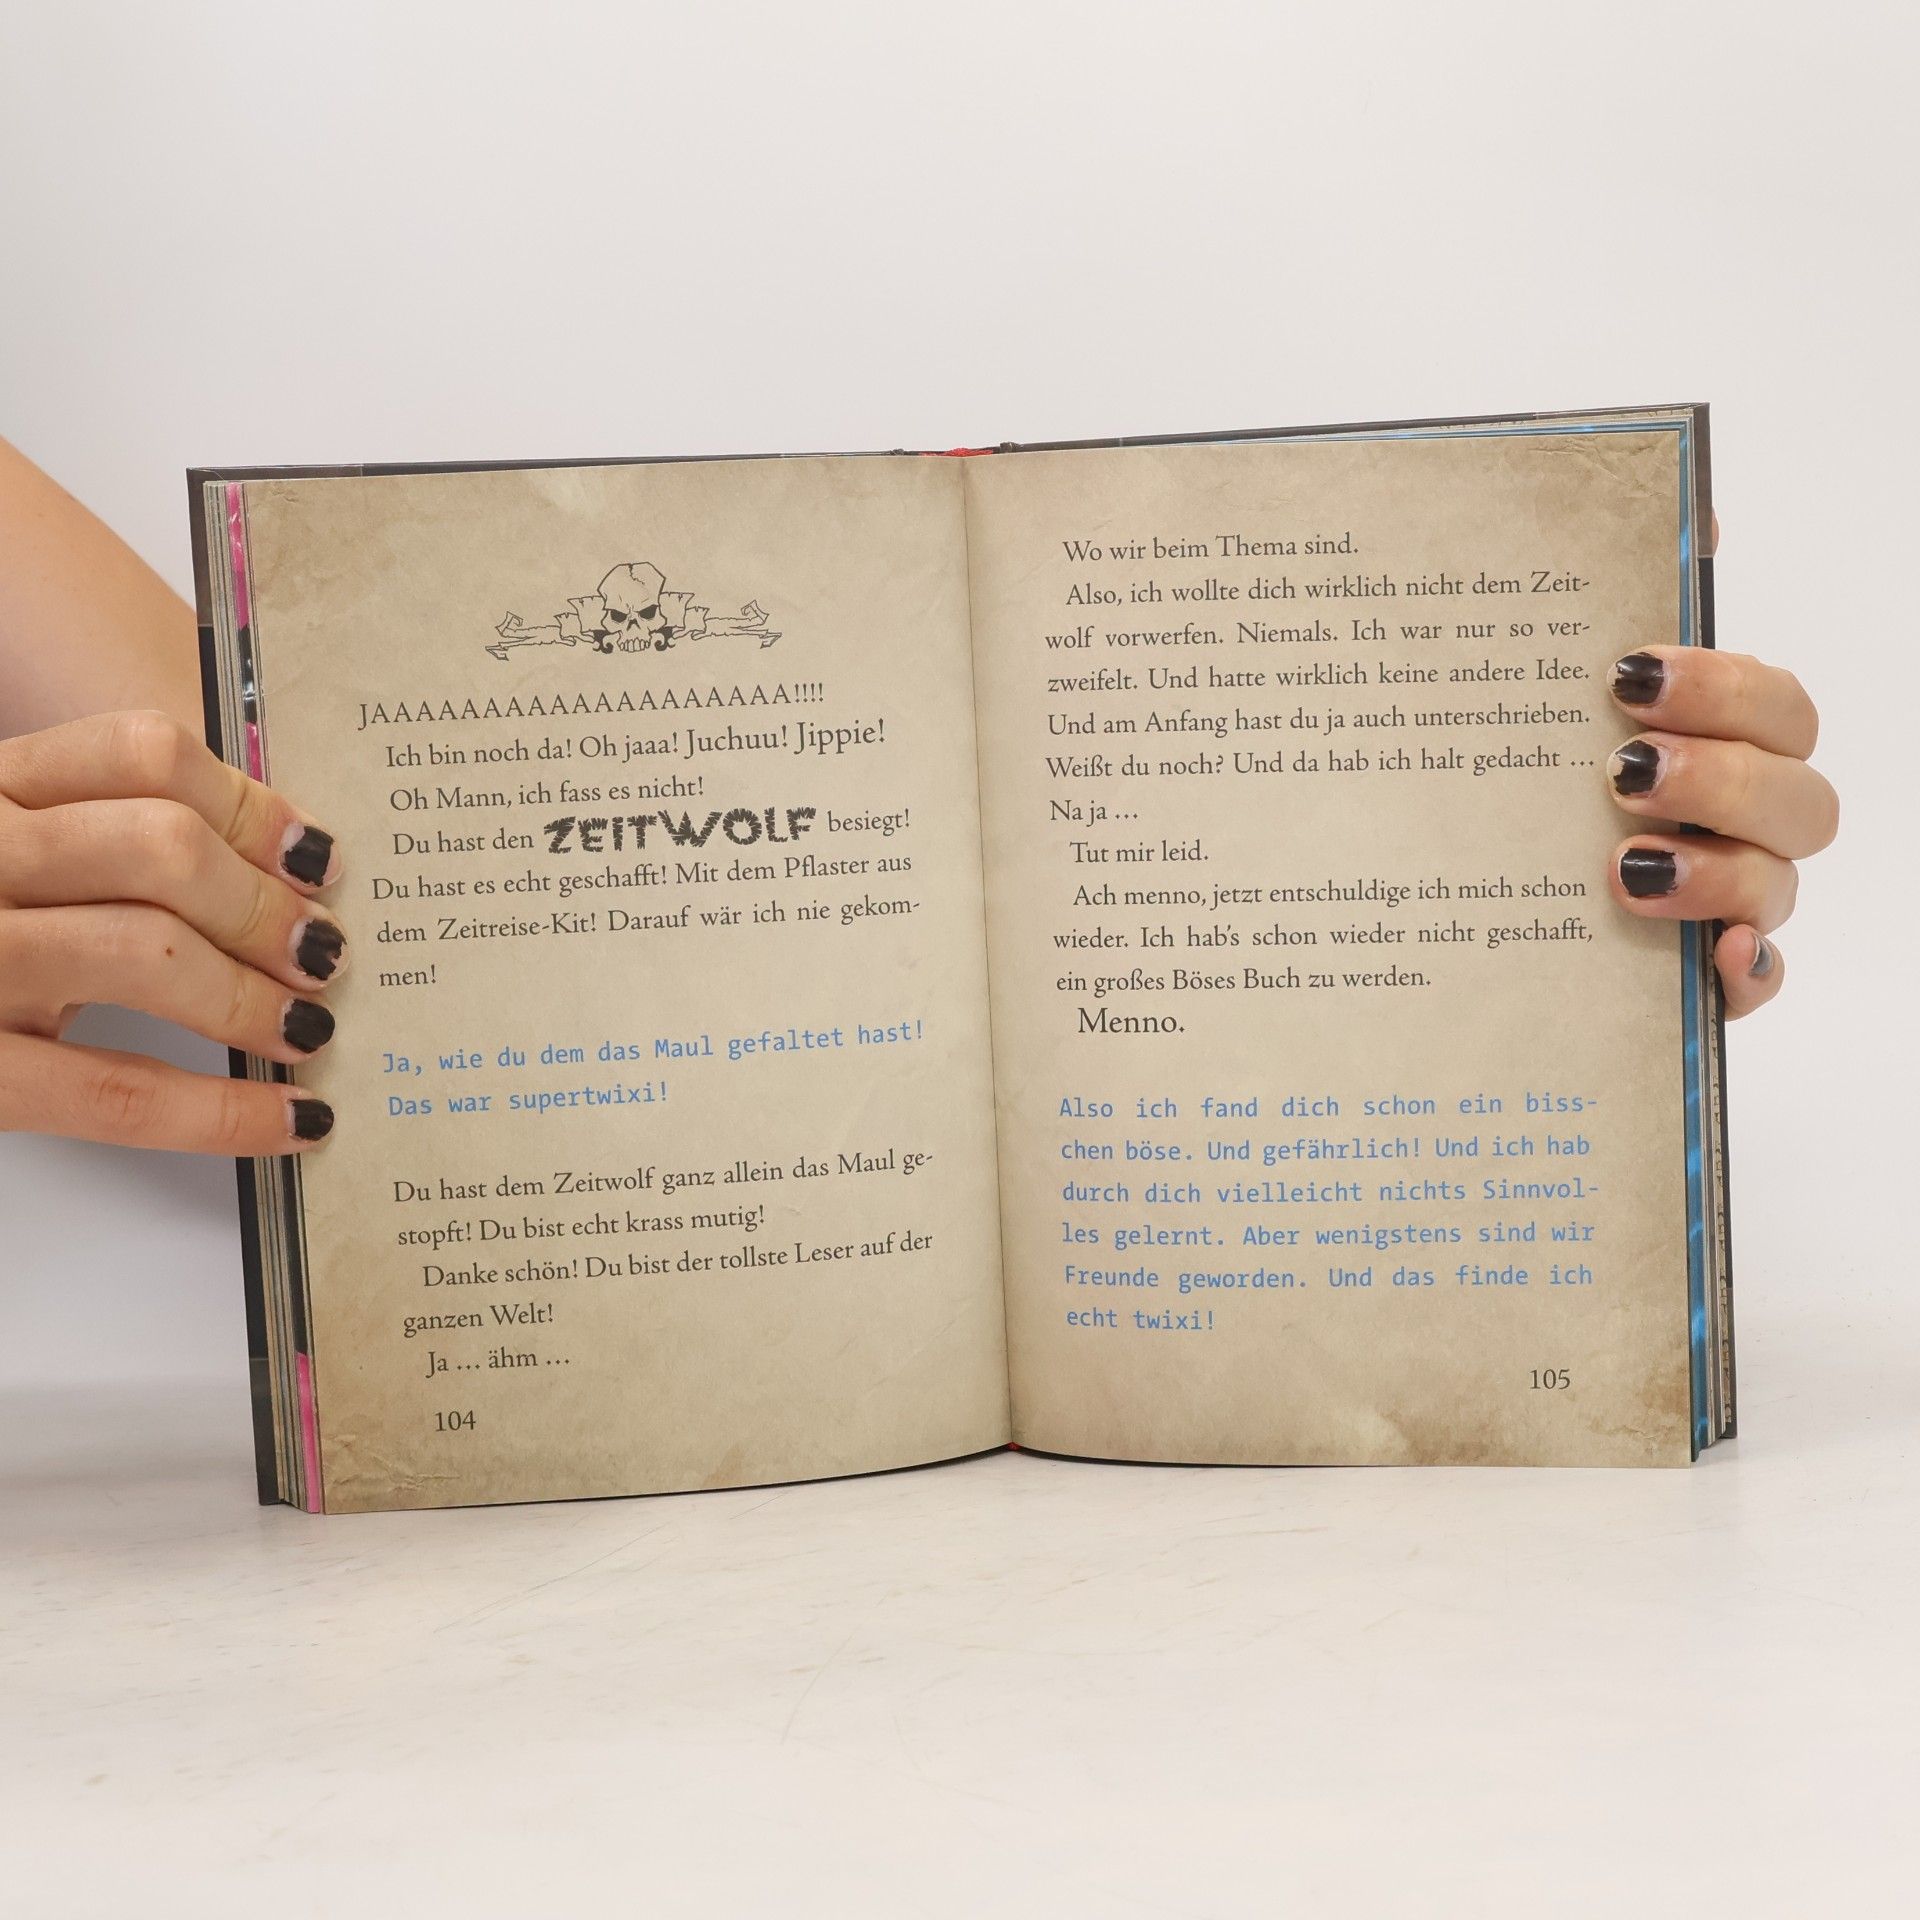 JAAAAAAAAAAAAAAAAAAA!!!!
Ich bin noch da! Oh jaaa! Juchuu! Jippie!
Oh Mann, ich fass es nicht!
Du hast den ZEITWOLF besiegt!
Du hast es echt geschafft! Mit dem Pflaster aus
dem Zeitreise-Kit! Darauf wär ich nie gekom-
men!
Ja, wie du dem das Maul gefaltet hast!
Das war supertwixi!
Du hast dem Zeitwolf ganz allein das Maul ge-
stopft! Du bist echt krass mutig!
Danke schön! Du bist der tollste Leser auf der
ganzen Welt!
Ja … ähm …
104
Wo wir beim Thema sind.
Also, ich wollte dich wirklich nicht dem Zeit-
wolf vorwerfen. Niemals. Ich war nur so ver-
zweifelt. Und hatte wirklich keine andere Idee.
Und am Anfang hast du ja auch unterschrieben.
Weißt du noch? Und da hab ich halt gedacht …
Na ja …
Tut mir leid.
Ach menno, jetzt entschuldige ich mich schon
wieder. Ich hab's schon wieder nicht geschafft,
ein großes Böses Buch zu werden.
Menno.
Also ich fand dich schon ein biss-
chen böse. Und gefährlich! Und ich hab
durch dich vielleicht nichts Sinnvol-
les gelernt. Aber wenigstens sind wir
Freunde geworden. Und das finde ich
echt twixi!
105